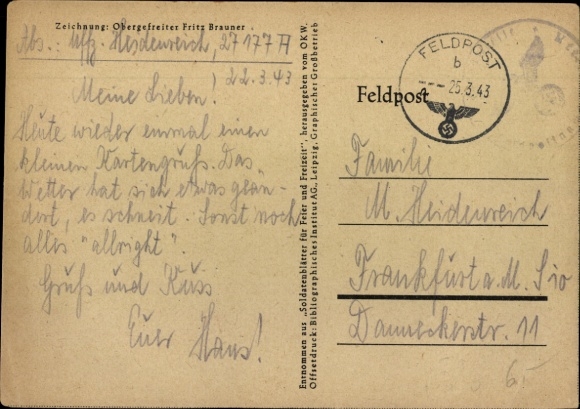 Zeichnung: Obergefreiter Fritz Brauner
Abs.: Uffz. Heidenreich, 27177 A
22.3.43
Meine Lieben!
Heute wieder einmal einen
kleinen Kartengruß. Das
Wetter hat sich etwas geän-
dert, es schneit. Sonst noch
alles "allright".
Gruß und Kuss
Euer Hans!
Entnommen aus „Soldatenblätter für Feier und Freizeit“, herausgegeben vom OKW.
Offsetdruck: Bibliographisches Institut AG., Leipzig, Graphischer Großbetrieb
FELDPOST
b
--- 25.3.43
Feldpost
Familie
M. Heidenreich
Frankfurt a. M. S 10
Danneckerstr. 11
6.-